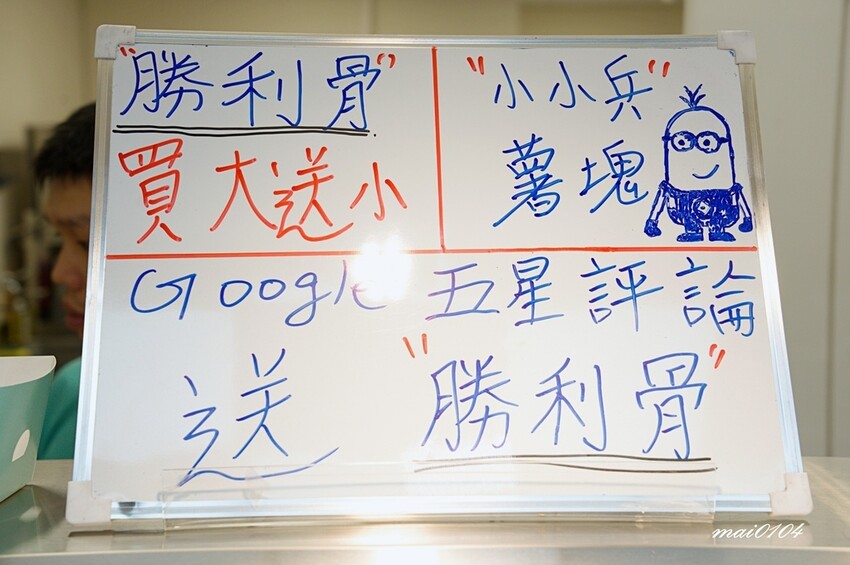 "勝利骨"
買大送小
"小小兵"
薯塊
Google 五星評論
送 "勝利骨"
mai0104